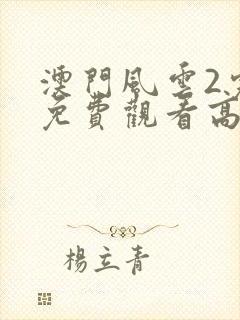 澳門風雲2
免費觀看高
楊立青